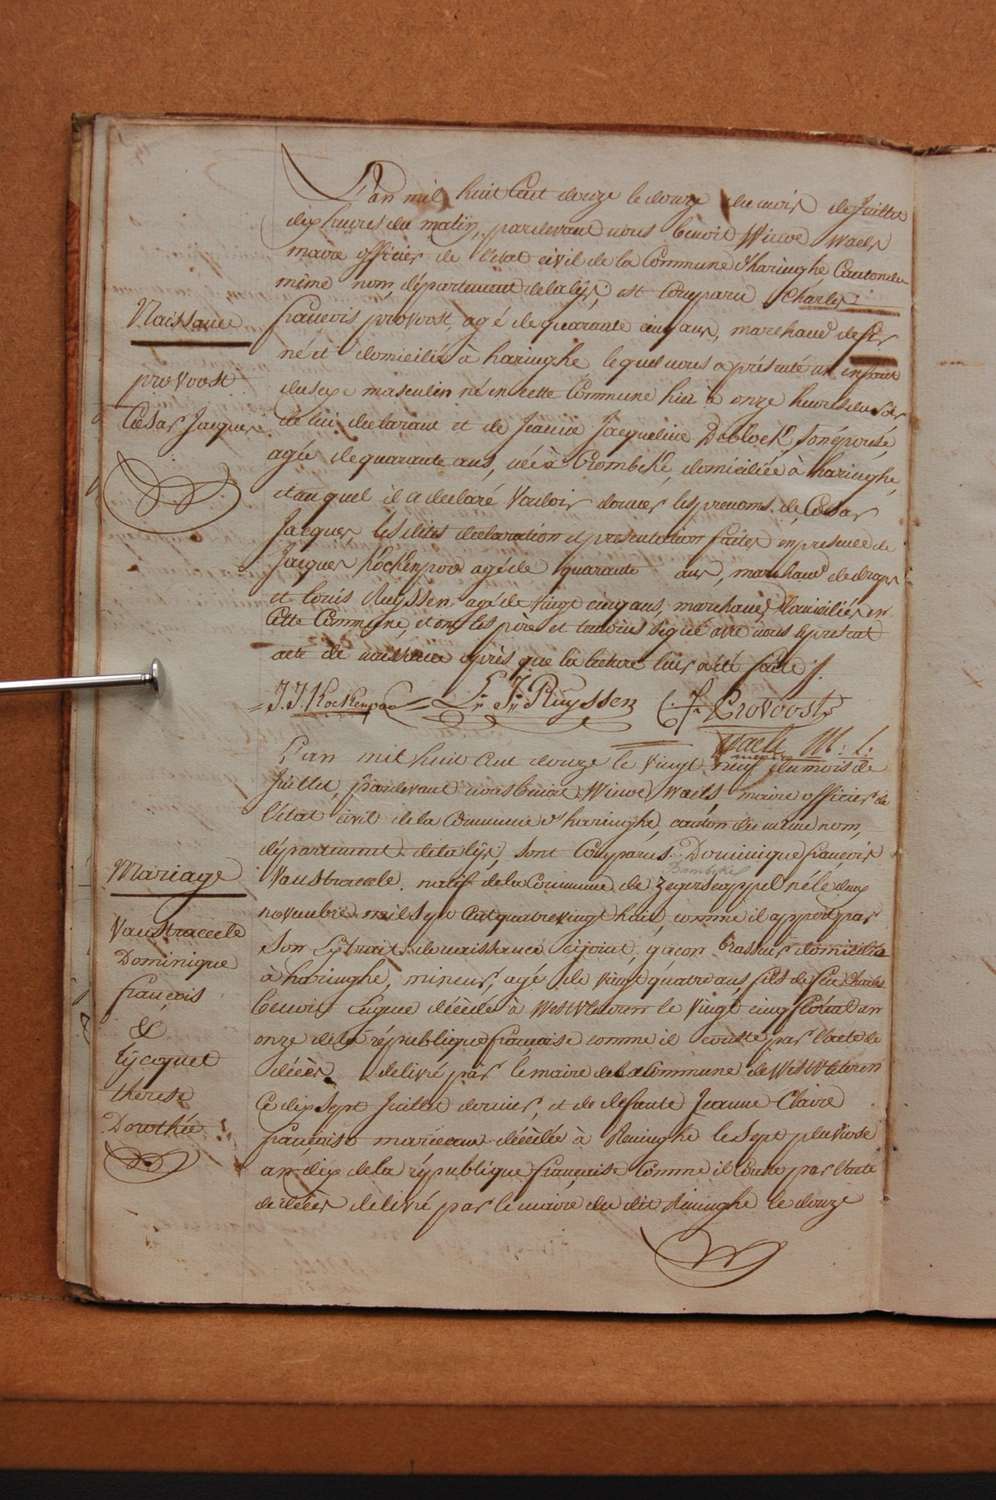 L'an mil huit Cent douze le douze du mois de Juillet
dix heures du matin, pardevant nous benoit Winoc Waels
maire officier de l'etat civil de la Commune d'haringhe Canton du
même nom, département de la lys; est Comparu Charles
Naissance
francois provoost, agé de quarante cinq ans, marchand de fer
né et domicilié à haringhe, lequel nous a présenté un enfant
provoost
du sexe masculin né en cette Commune hier à onze heures du soir,
Cæsar Jacques
de lui déclarant et de Jeanne Jacqueline Deblock, son épouse,
agée de quarante ans, née à Crombeke, domiciliée à haringhe,
et auquel il a declaré Vouloir donner les prenoms de, Cæsar
Jacques, les dites declaration et presentation faites en presence de
Jacques Kockenpoo agé de quarante ans, marchand de draps
et louis Ruyssen, agé de vingt cinq ans, marchand domiciliés en
Cette Commune, et ont les père et temoins signé avec nous le present
acte de naissance après que la lecture leur a été faite.
J. J. Kockenpoo L. J. Ruyssen C. f. Provoost
Waels M: L:
L'an mil huit Cent douze le Vingt neuf du mois de
Juillet, pardevant nous benoit Winoc Waels, maire officier de
l'état civil de la Commune d'haringhe, canton du même nom,
département de la lys, sont Comparus Dominique francois
Mariage
Vanstraceele natif de la Commune de Zegerscappel né le deux
novembre mil Sept Cent quatre vingt huit, comme il appert par
Vanstraceele
Son Extrait de naissance ci joint, garcon brasseur domicilié
Dominique
à haringhe, mineur, agé de vingt quatre ans, fils de feu Charles
françois
benoit Eugene décédé à Westvleteren le Vingt cinq floréal an
&
onze de la république française comme il conste par l'acte de
Lycoquet
décès délivré par le maire de la Commune de Westvleteren
thérese
Ce dix Sept Juillet dernier, et de defunte Jeanne Claire
Dorothée
françoise marceau décédée à Reninghe le Sept pluviose
an dix de la république française Comme il Conste par l'acte
de décès délivré par le maire du dit Reninghe le douze